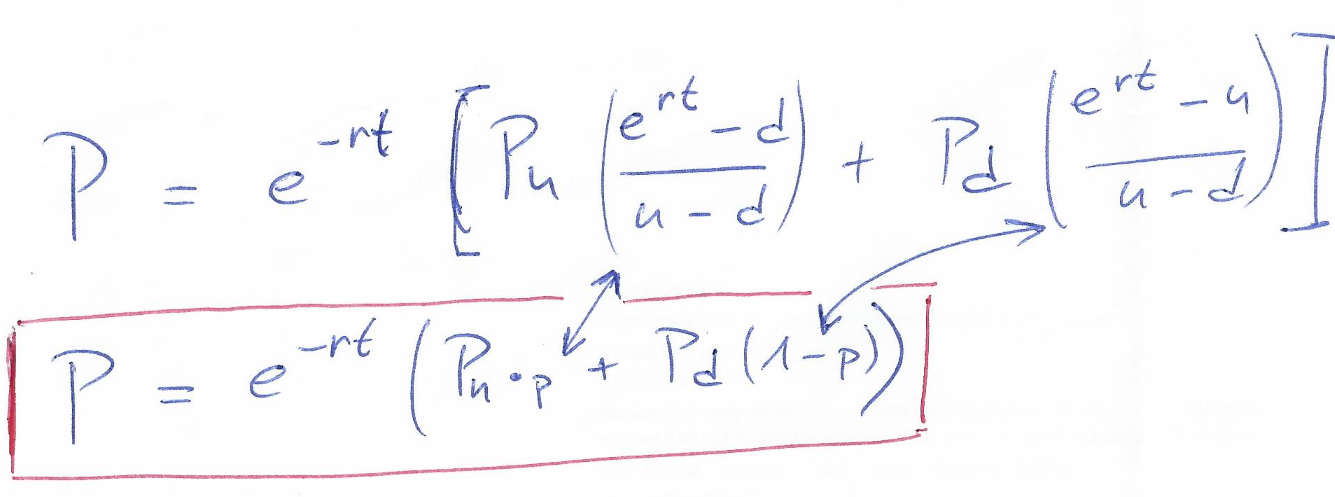 P = e^{-rt} [ P_u ( (e^{rt} - d) / (u - d) ) + P_d ( (e^{rt} - u) / (u - d) ) ]
P = e^{-rt} ( P_u · p + P_d (1 - p) )